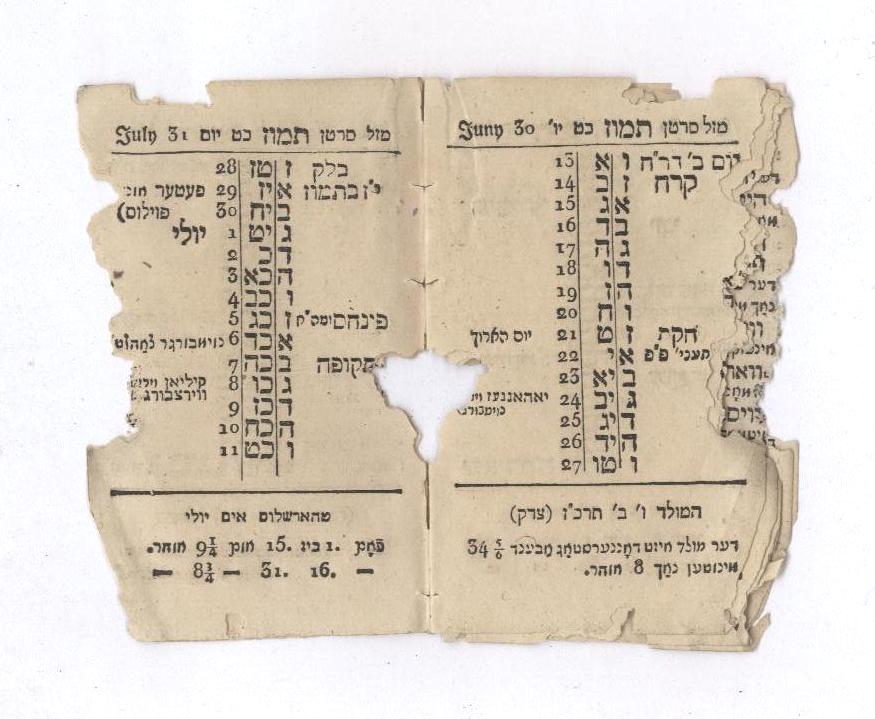 מזל סרטן תמוז כט יו' Juny 30
יום ב' דר"ח ו א 13
קרח ז ב 14
א ג 15
ב ד 16
ג ה 17
ד ו 18
ה ז 19
ו ח 20
חקת ז ט 21 יום הארוך
תעני' פ"פ א י 22
ב יא 23
ג יב 24 יאהאננעז
ד יג 25
ה יד 26
ו טו 27
המולד ו' ב' תרכ"ז (צדק)
דער מולד איזט דאָננערסטאַג אַבענד 34 5/6
מינוטען נאָך 8 אוהר.
מזל סרטן תמוז כט יום July 31
בלק ז טז 28
י"ז בתמוז א יז 29 פעטער
ב יח 30 פוילוס)
ג יט 1 יולי
ד כ 2
ה כא 3
ו כב 4
פינחס ז כג 5
א כד 6
תקופה ב כה 7
ג כו 8 קיליאן
ווירצבורג
ד כז 9
ה כח 10
ו כט 11
טהארשלוס אים יולי
פֿאָם 1. ביז 15. אום 9¼ אוהר.
— 16. 31. — 8¾ —